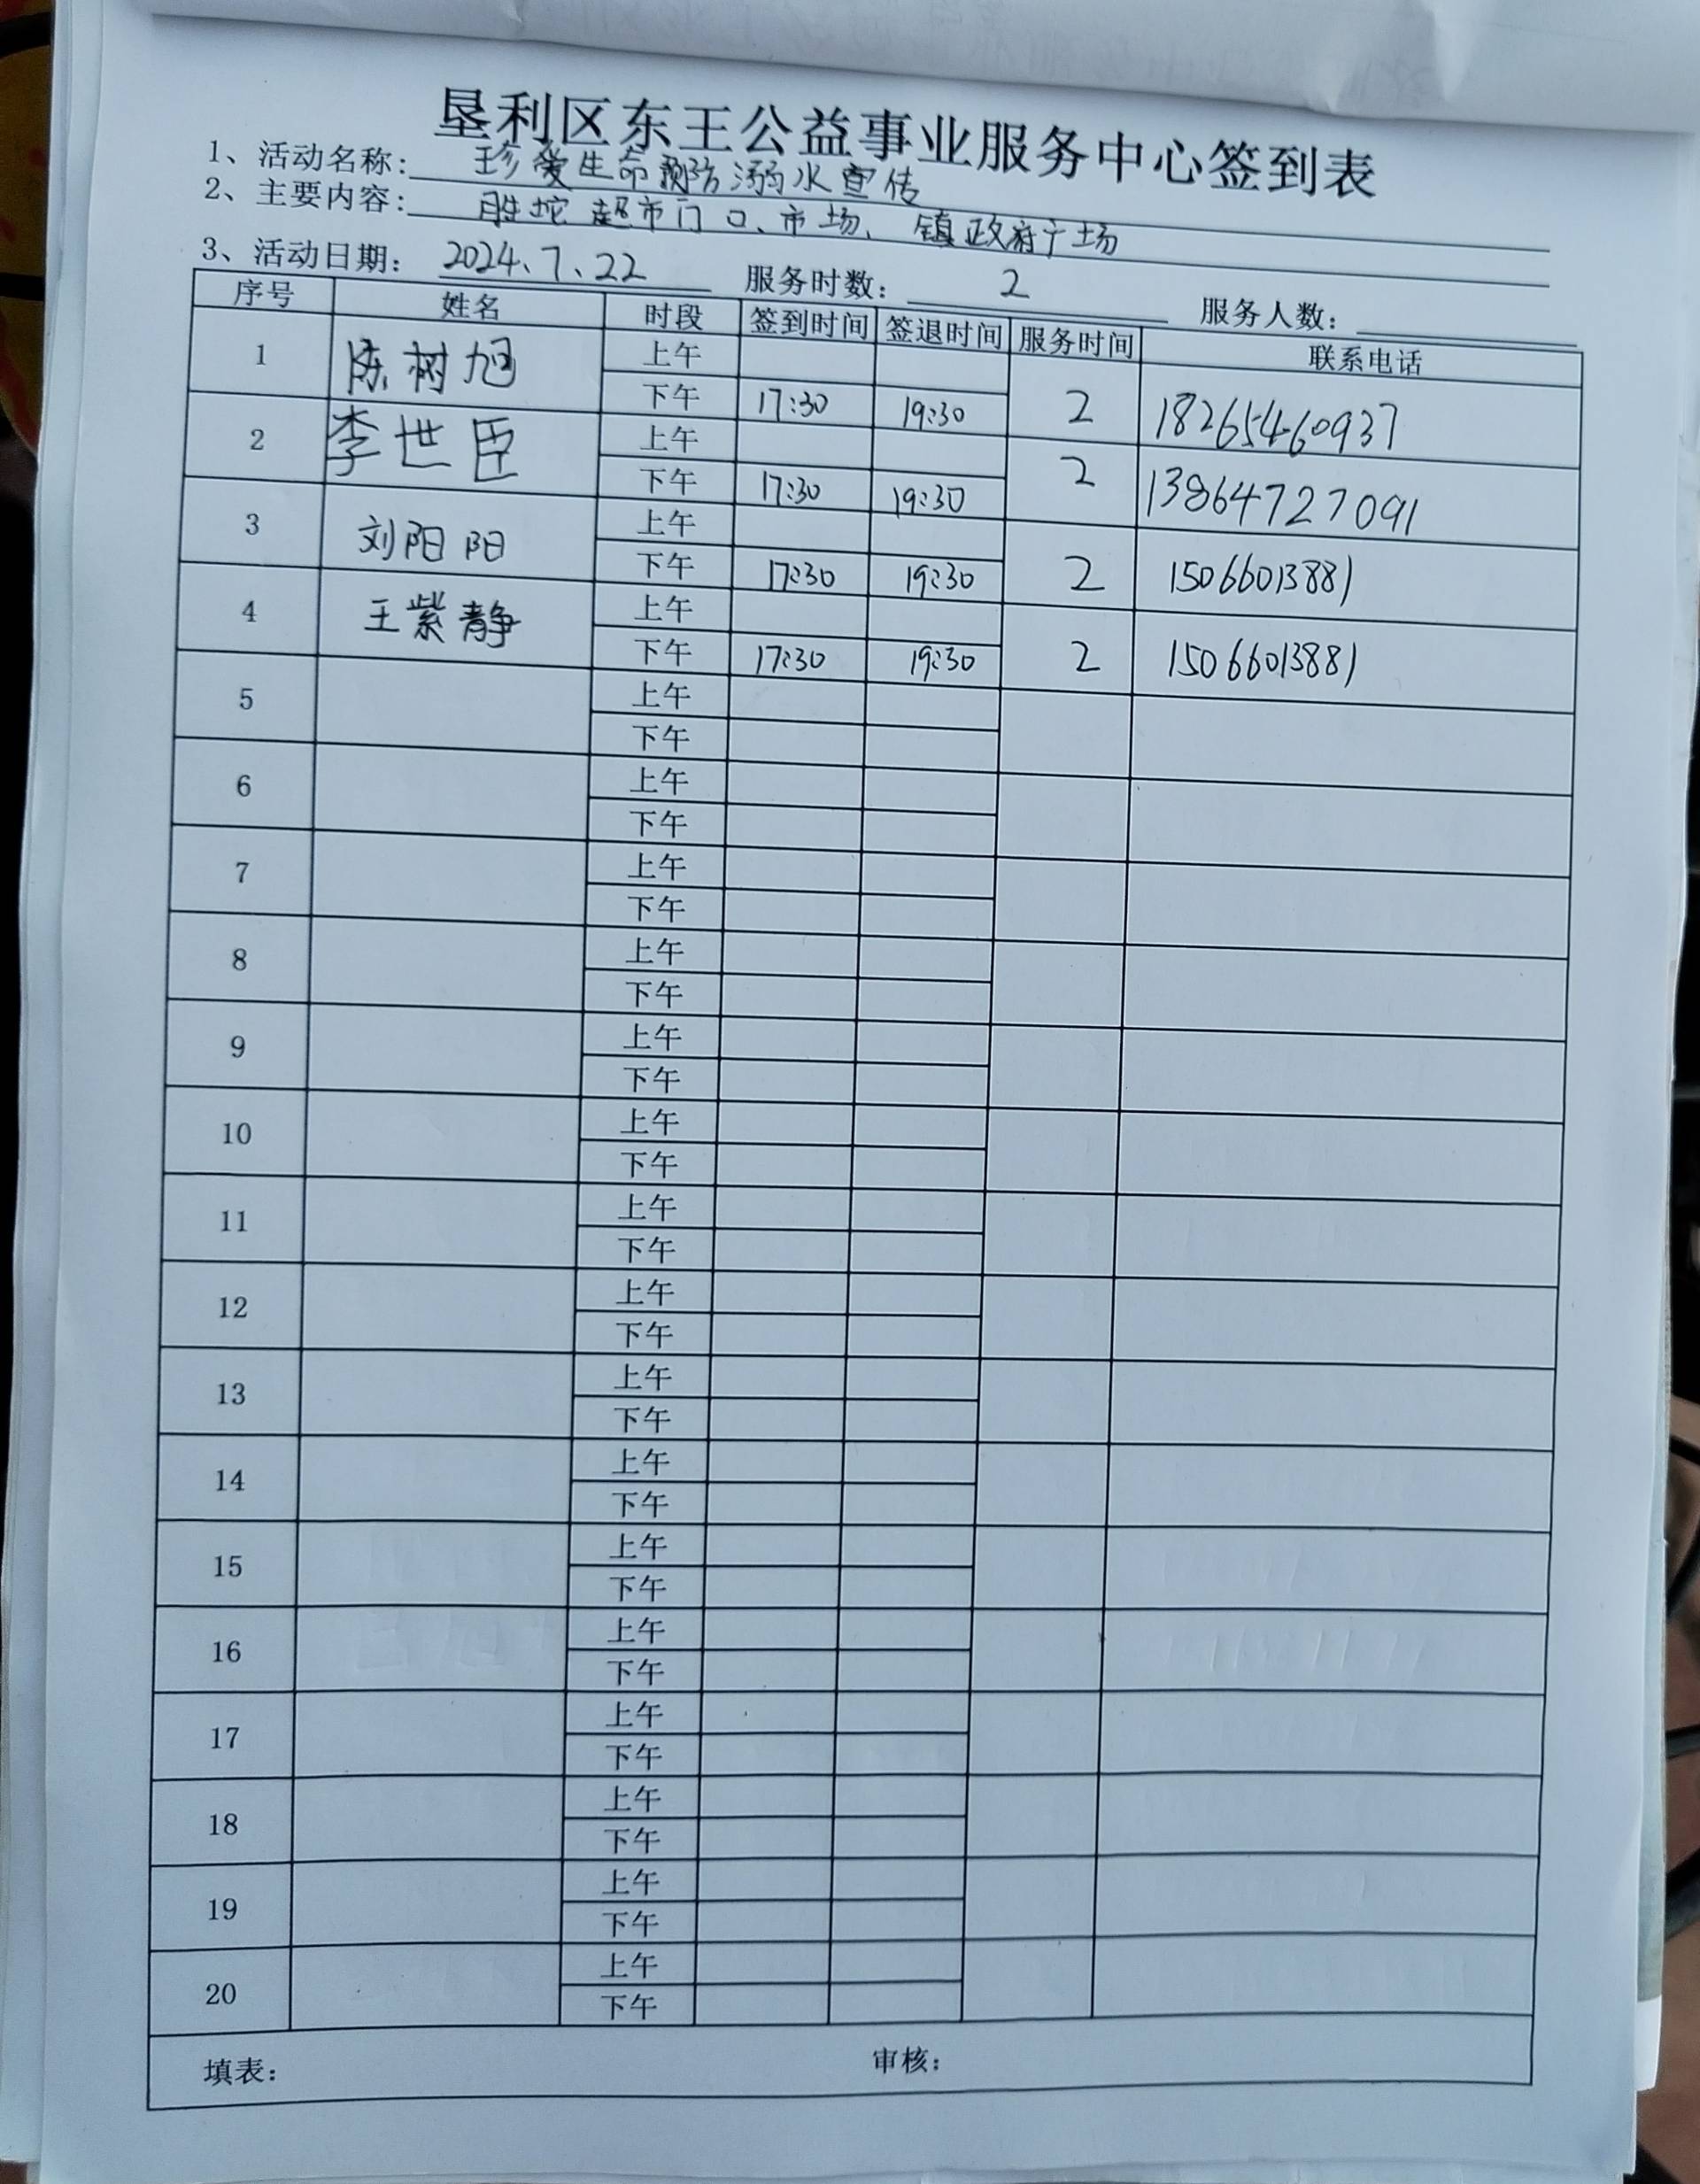 垦利区东王公益事业服务中心签到表
1、活动名称: 珍爱生命预防溺水宣传
2、主要内容: 胜坨超市门口、市场、镇政府广场
3、活动日期: 2024、7、22 服务时数: 2 服务人数:
序号 姓名 时段 签到时间 签退时间 服务时间 联系电话
1 陈树旭 上午
下午 17:30 19:30 2 18265460937
2 李世臣 上午
下午 17:30 19:30 2 13864727091
3 刘阳阳 上午
下午 17:30 19:30 2 15066013881
4 王紫静 上午
下午 17:30 19:30 2 15066013881
5 上午
下午
6 上午
下午
7 上午
下午
8 上午
下午
9 上午
下午
10 上午
下午
11 上午
下午
12 上午
下午
13 上午
下午
14 上午
下午
15 上午
下午
16 上午
下午
17 上午
下午
18 上午
下午
19 上午
下午
20 上午
下午
填表: 审核: